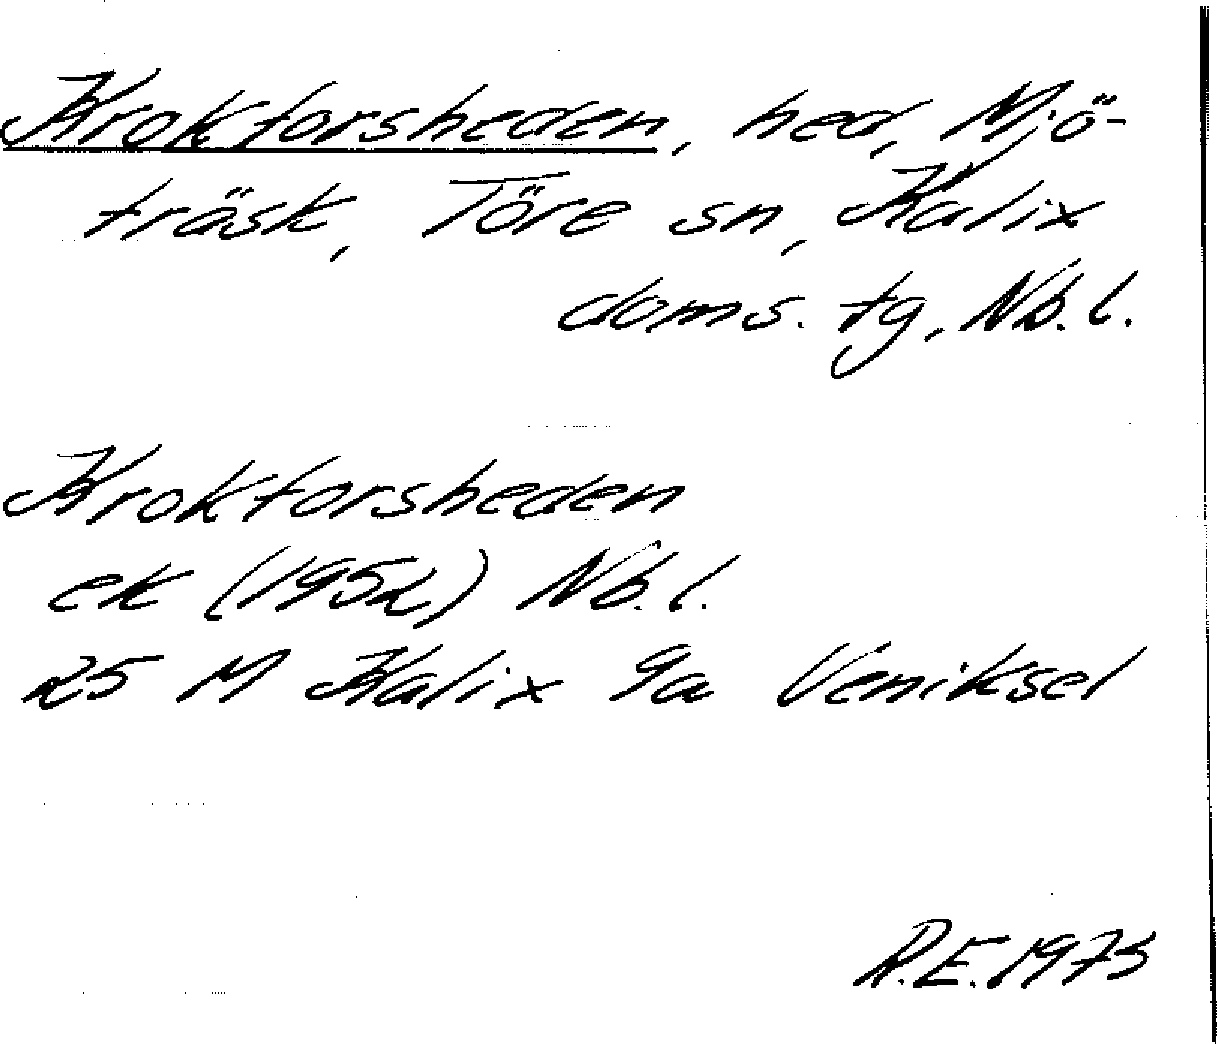 Krokforsheden, hed, Mjö-
träsk, Töre sn, Kalix
doms. tg, Nb. l.
Krokforsheden
ek (1952) Nb. l.
25 M Kalix 9a Veniksel
R.E. 1975